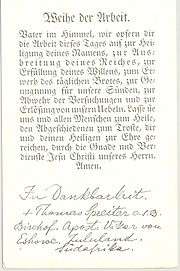 Weihe der Arbeit.
Vater im Himmel, wir opfern dir
die Arbeit dieses Tages auf zur Hei-
ligung deines Namens, zur Aus-
breitung deines Reiches, zur
Erfüllung deines Willens, zum Er-
werb des täglichen Brotes, zur Ge-
nugtuung für unsere Sünden, zur
Abwehr der Versuchungen und zur
Erlösung von unsern Uebeln. Lass sie
uns und allen Menschen zum Heile,
den Abgeschiedenen zum Troste, dir
und deinen Heiligen zur Ehre ge-
reichen, durch die Gnade und Ver-
dienste Jesu Christi unseres Herrn.
Amen.
In Dankbarkeit.
+ Thomas Spreiter O.S.B.
Bischof, Apost. Vikar von
Eshowe, Zululand.
Südafrika.